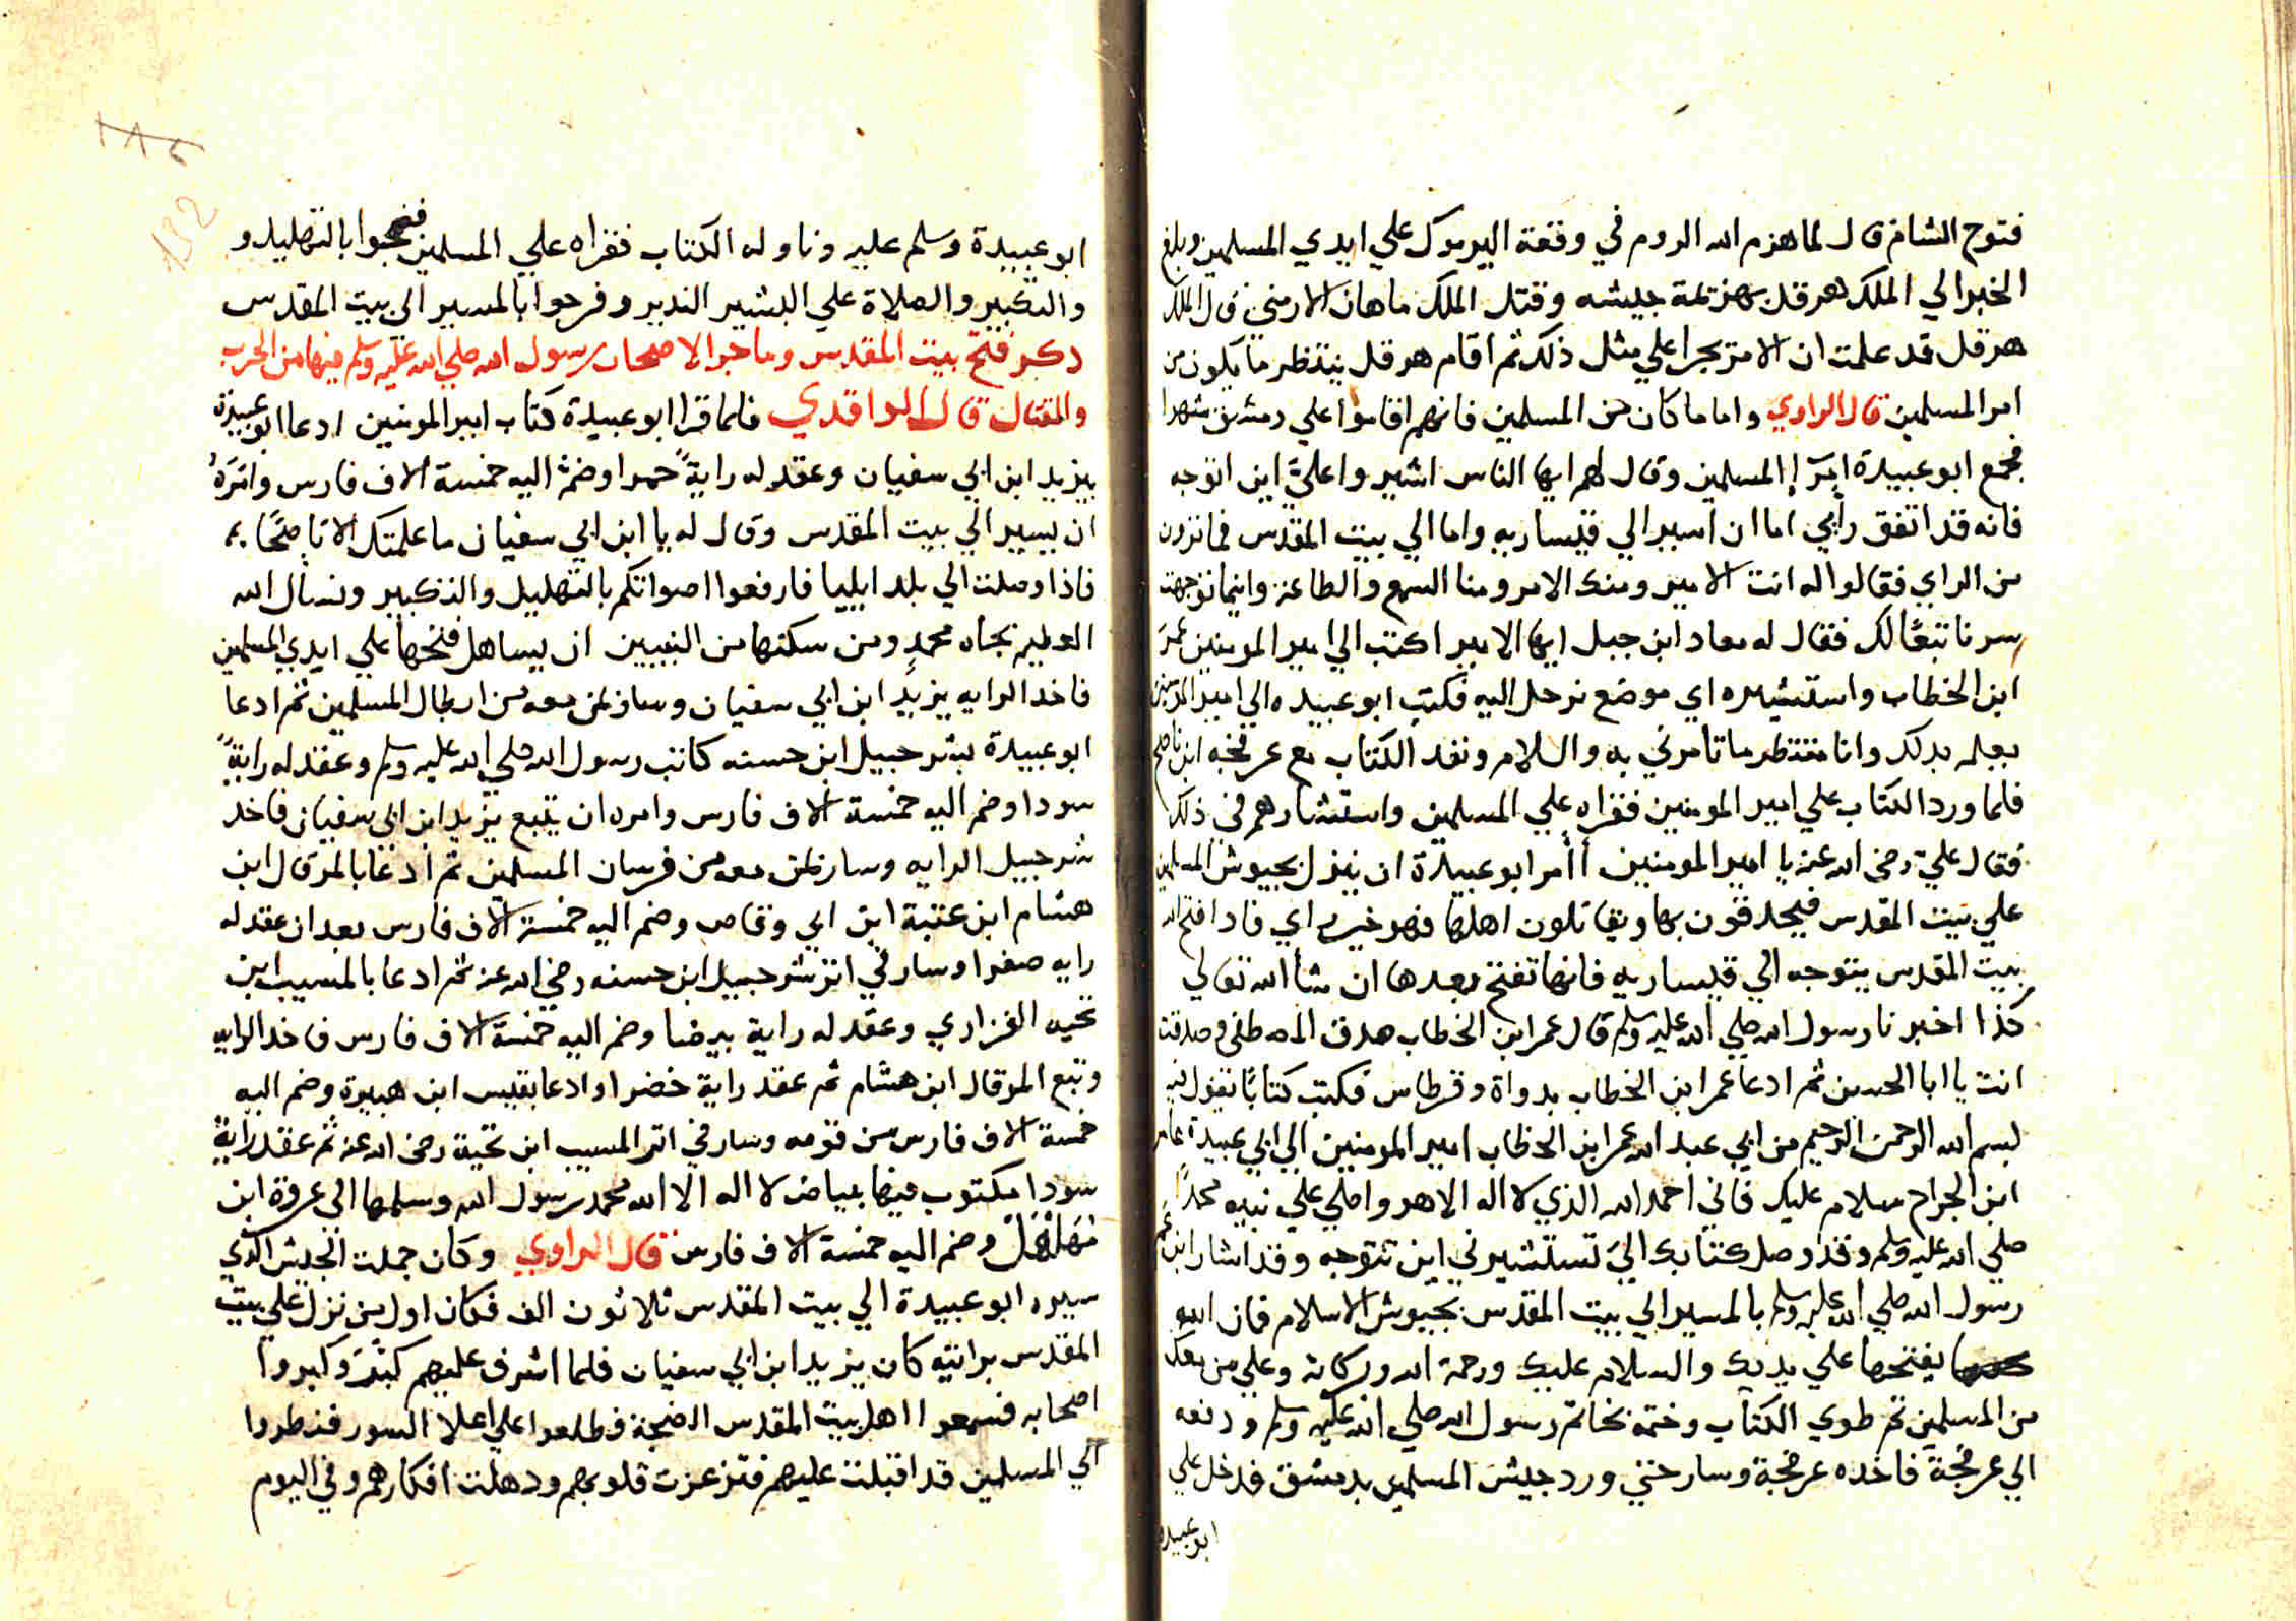 فتوح الشام قال لما هزم الله الروم في وقعة اليرموك علي ايدي المسلمين وبلغ
الخبر الي الملك هرقل بهزيمة جيشه وقتل الملك ماهان الارمني قال الملك
هرقل قد علمت ان الامر يجرا علي مثل ذلك ثم اقام هرقل ينتظر ما يكون من
امر المسلمين قال الراوي واما ما كان من المسلمين فانهم اقاموا علي دمشق شهرا
فجمع ابو عبيدة امرا المسلمين وقال لهم ايها الناس اشيروا عليّ اين اتوجه
فانه قد اتفق رأيي اما ان اسير الي قيساريه واما الي بيت المقدس فما ترون
من الراي فقالوا له انت الامير ومنك الامر ومنا السمع والطاعة واينما توجهت
سرنا تبعًا لك فقال له معاد ابن جبل ايها الامير اكتب الي امير المومنين عمر
ابن الخطاب واستشيره اي موضع نرحل اليه فكتب ابو عبيده الي امير المومنين
يعلمه بدلك وانا منتظر ما تامرني به والسلام ونفد الكتاب مع عرفجه ابن ناصح
فلما ورد الكتاب علي امير المومنين فقراه علي المسلمين واستشارهم في ذلك
فقال عليّ رضي الله عنه يا امير المومنين أأمر ابو عبيدة ان ينزل بجيوش المسلمين
علي بيت المقدس فيحدقون بها ويقاتلون اهلها فهو خير اي فادا افتح الله
بيت المقدس يتوجه الي قيساريه فانها تفتح بعدها ان شأ الله تعالي
كذا اخبرنا رسول الله صلي الله عليه وسلم قال عمر ابن الخطاب صدق المصطفي وصدقت
انت يا ابا الحسن ثم ادعا عمر ابن الخطاب بدواة وقرطاس فكتب كتابًا يقول فيه
بسم الله الرحمن الرحيم من ابي عبد الله عمر ابن الخطاب امير المومنين الي ابي عبيدة عامر
ابن الجراح سلام عليك فاني احمد الله الذي لا اله الا هو واصلي علي نبيه محمدًا
صلي الله عليه وسلم وقد وصل كتابك اليّ تستشيرني اين تتوجه وقد اشار ابن عم
رسول الله صلي الله عليه وسلم بالمسير الي بيت المقدس بجيوش الاسلام فان الله
يفتحها علي يديك والسلام عليك ورحمة الله وبركاته وعلي من معك
من المسلمين ثم طوي الكتاب وختمه بخاتم رسول الله صلي الله عليه وسلم ودفعه
الي عرفجة فاخده عرفجة وسار حتي ورد جيش المسلمين بدمشق فدخل علي
ابو عبيده
ابو عبيدة وسلم عليه وناوله الكتاب فقراه علي المسلمين فضجوا بالتهليل و
والتكبير والصلاة علي البشير الندير وفرحوا بالمسير الي بيت المقدس
دكر فتح بيت المقدس وما جرا لاصحاب رسول الله صلي الله عليه وسلم فيها من الحرب
والقتال قال الواقدي فلما قرا ابو عبيدة كتاب امير المومنين ادعا ابو عبيدة
بيزيد ابن ابي سفيان وعقد له رايةً حمرا وضم اليه خمسة الاف فارس وامره
ان يسير الي بيت المقدس وقال له يا ابن ابي سفيان ما علمتك الا ناصحًا
فاذا وصلت الي بلد ايليا فارفعوا اصواتكم بالتهليل والتكبير ونسأل الله
العظيم بجاه محمدٍ ومن سكنها من النبيين ان يساهل فتحها علي ايدي المسلمين
فاخد الرايه يزيد ابن ابي سفيان وسار بمن معه من ابطال المسلمين ثم ادعا
ابو عبيدة بشرحبيل ابن حسنه كاتب رسول الله صلي الله عليه وسلم وعقد له رايةً
سودا وضم اليه خمسة الاف فارس وامره ان يتبع يزيد ابن ابي سفيان فاخد
شرحبيل الرايه وسار بمن معه من فرسان المسلمين ثم ادعا بالمرقال ابن
هشام ابن عتبة ابن ابي وقاص وضم اليه خمسة الاف فارس بعد ان عقد له
رايه صفرا وسار في اتر شرحبيل ابن حسنه رضي الله عنه ثم ادعا بالمسيب ابن
نجيه الفزاري وعقد له راية بيضا وضم اليه خمسة الاف فارس فاخد الرايه
وتبع المرقال ابن هشام ثم عقد راية خضرا وادعا بقيس ابن هبيرة وضم اليه
خمسة الاف فارس من قومه وسار في اتر المسيب ابن نجية رضي الله عنه ثم عقد رايةً
سودا مكتوب فيها ببياض لا اله الا الله محمد رسول الله وسلمها الي عروة ابن
مهلهل وضم اليه خمسة الاف فارس قال الراوي وكان جملت الجيش الذي
سيره ابو عبيدة الي بيت المقدس ثلاثون الف فكان اول من نزل علي بيت
المقدس برايته كان يزيد ابن ابي سفيان فلما اشرف عليهم كبّر وكبروا
اصحابه فسمعوا اهل بيت المقدس الضجة فطلعوا علي اعلا السور فنظروا
الي المسلمين قد اقبلت عليهم فتزعزعت قلوبهم ودهلت افكارهم وفي اليوم
132